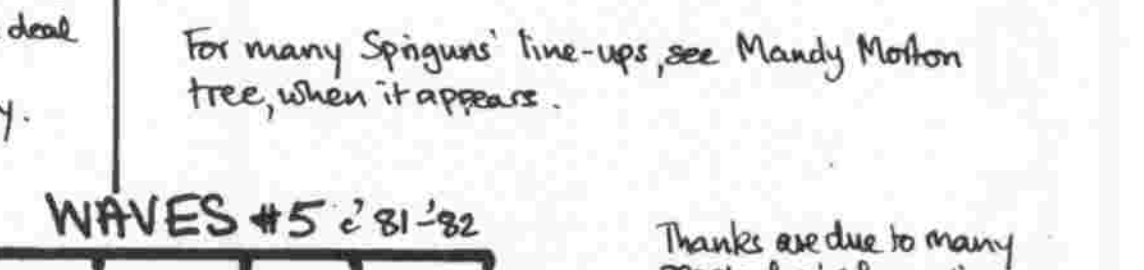 deal
For many Spriguns' line-ups, see Mandy Morton
tree, when it appears.
y.
WAVES #5 c' 81-'82
Thanks are due to many